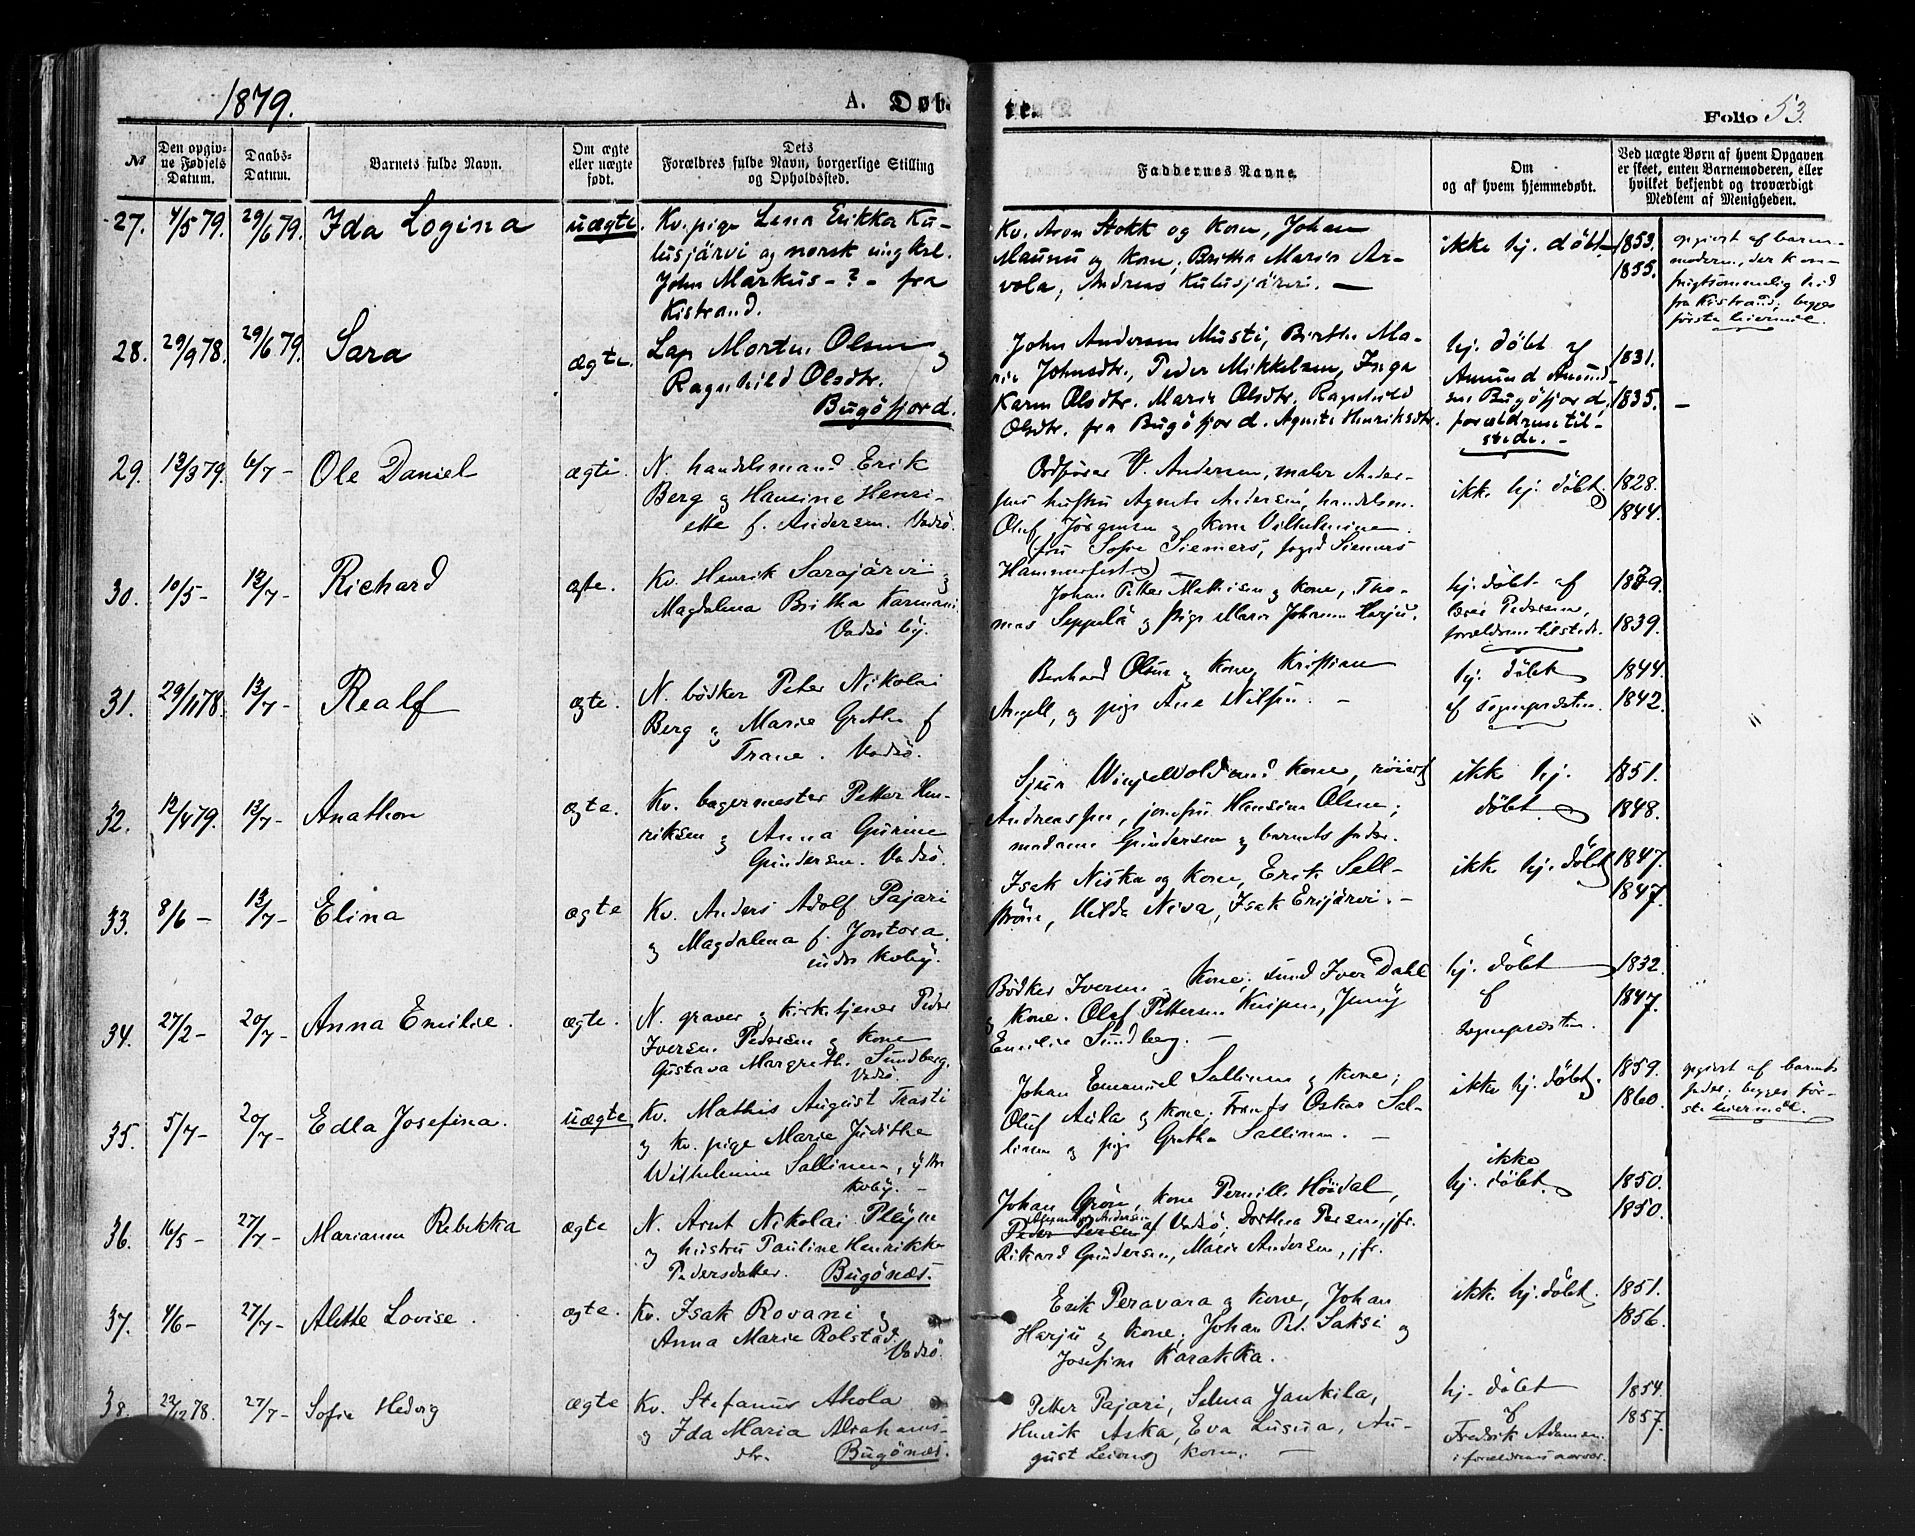 1879.
A. Døb
te.
Folio 53.
№
Den opgivne Fødsels Datum.
Daabs-Datum.
Barnets fulde Navn.
Om ægte eller uægte født.
Dets Forældres fulde Navn, borgerlige Stilling og Opholdssted.
Faddernes Navne.
Om og af hvem hjemmedøbt.
Ved uægte Børn af hvem Opgaven er skeet, enten Barnemoderen, eller hvilket bekjendt og troværdigt Medlem af Menigheden.
27. 4/5 79. 29/6 79. Ida Logina uægte. Kv. pige Lena Erikka Ku-
lusjärvi og norsk ungkel.
John Markus - ? - fra
Kistrand.
Kv. Aron Stokk og Kone, Johan
Maunu og Kone, Britha Maria Ar-
vola, Andreas Kulusjärvi. —
ikke hj. døbt
1853.
1855.
opgivet af barne-
moderen, der kom
frugtsommelig hid
fra Kistrand; begges
første leiermål.
28. 29/9 78. 29/6 79. Sara ægte. Lap Morten Olsen og
Ragnhild Olsdtr.
Bugöfjord.
John Andersen Musti, Birthe Ma-
rie Johnsdtr., Peder Mikkelsen, Inga
Karen Olsdtr. Marie Olsdtr. Ragnhild
Olsdtr. fra Bugöfjord. Agnete Henriksdtr.
hj. döbt af
Amund Amund-
sen Bugöfjord,
forældrene til-
stede. -
1831.
1835. —
29. 13/3 79. 6/7 - Ole Daniel ægte. N. handelsmand Erik
Berg og Hansine Henri-
ette f. Andersen. Vadsö.
Ordfører V. Andersen, maler Ander-
sens hustru Agnete Andersen, handelsm.
Oluf Jörgensen og Kone Vilhelmine
(fru Sofie Siemers, foged Siemers
Hammerfest)
ikke hj. döbt
1828.
1844.
30. 10/5 - 13/7 - Richard ægte. Kv. Henrik Sarajärvi og
Magdalena Britha Karmani.
Vadsö by.
Johan Petter Mathisen og Kone, Tho-
mas Seppela og pige Maria Johanna Harju.
hj. døbt af
lærer Pedersen,
forældrene tilstede.
1839.
31. 29/11 78. 13/7 - Realf ægte. N. bödker Peter Nikolai
Berg og Marie Grethe f
Trane. Vadsö.
Bernhard Olsen og Kone, Kristian
Angell, og pige Ane Nilsen. —
hj. döbt
af sognepræsten.
1844.
1842.
32. 12/4 79. 13/7 - Anathon ægte. Kv. bagermester Petter Hen-
riksen og Anna Gurine
Gundersen. Vadsö.
Sjur Wingelvold med Kone,
Hansine Olsen,
madame Gundersen og barnets fader.
ikke hj.
döbt.
1851.
1848.
33. 8/6 - 13/7 - Elina ægte Kv. Anders Adolf Pajari
og Magdalena f. Jontora.
indre Kvby.
Isak Niska og Kone, Erik Sell-
ström, Hilda Niva, Isak Erijärvi. -
ikke hj. döbt
1847.
1847.
34. 27/2 - 20/7 - Anna Emilie. ægte. N. graver og kirketjener Peder
Iversen Pedersen og Kone
Gustava Margreth. Sundberg.
Vadsö.
Bödker Iversen og Kone, Iver Dahl
og Kone. Olaf Pettersen Knipen, Jenny
Emilie Sundberg. —
hj. döbt
af
sognepræsten.
1832.
1847.
35. 5/7 - 20/7 - Edla Josefina. uægte Kv. Mathis August Trasti
og Kv. pige Marie Judithe
Wilhelmine Sallinen, ytre
Kvby. -
Johan Emanuel Sallinen og Kone;
Oluf Aula og Kone. Frants Oskar Sal-
linen og pige Gretha Sallinen. —
ikke hj. döbt.
1859.
1860.
opgivet af barnets
fader; begges för-
ste leiermål.
36. 16/5 - 27/7 - Marianna Rebekka ægte N. Arnt Nikolai Pleym
og hustru Pauline Henrikke
Pedersdatter. Bugönæs.
Johan Grön, Kone Pernille Höidal,
Peder Persen af Vadsö, Dorthea Persen, jfr.
Rikard Gundersen, Marie Andersen, jfr.
ikke
hj. döbt.
1850.
1850.
37. 4/6 - 27/7 - Alette Lovise. ægte. Kv. Isak Rovani og
Anna Marie Rolstad.
Vadsö.
Erik Peravara og Kone, Johan
Harju og Kone, Johan Pet. Saksi og
Josefine Karakka.
ikke hj. döbt.
1851.
1856.
38. 22/12 78. 27/7 - Sofie Hedvig ægte Kv. Stefanus Ahola
og Ida Maria Abrahams-
dtr. Bugönæs.
Petter Pajari, Selma Jankila,
Henrik Aska, Eva Lusua, Au-
gust Leinog Kone. —
hj. döbt
af
Fredrik Adamsen
i forældrenes nærvær.
1854.
1857.